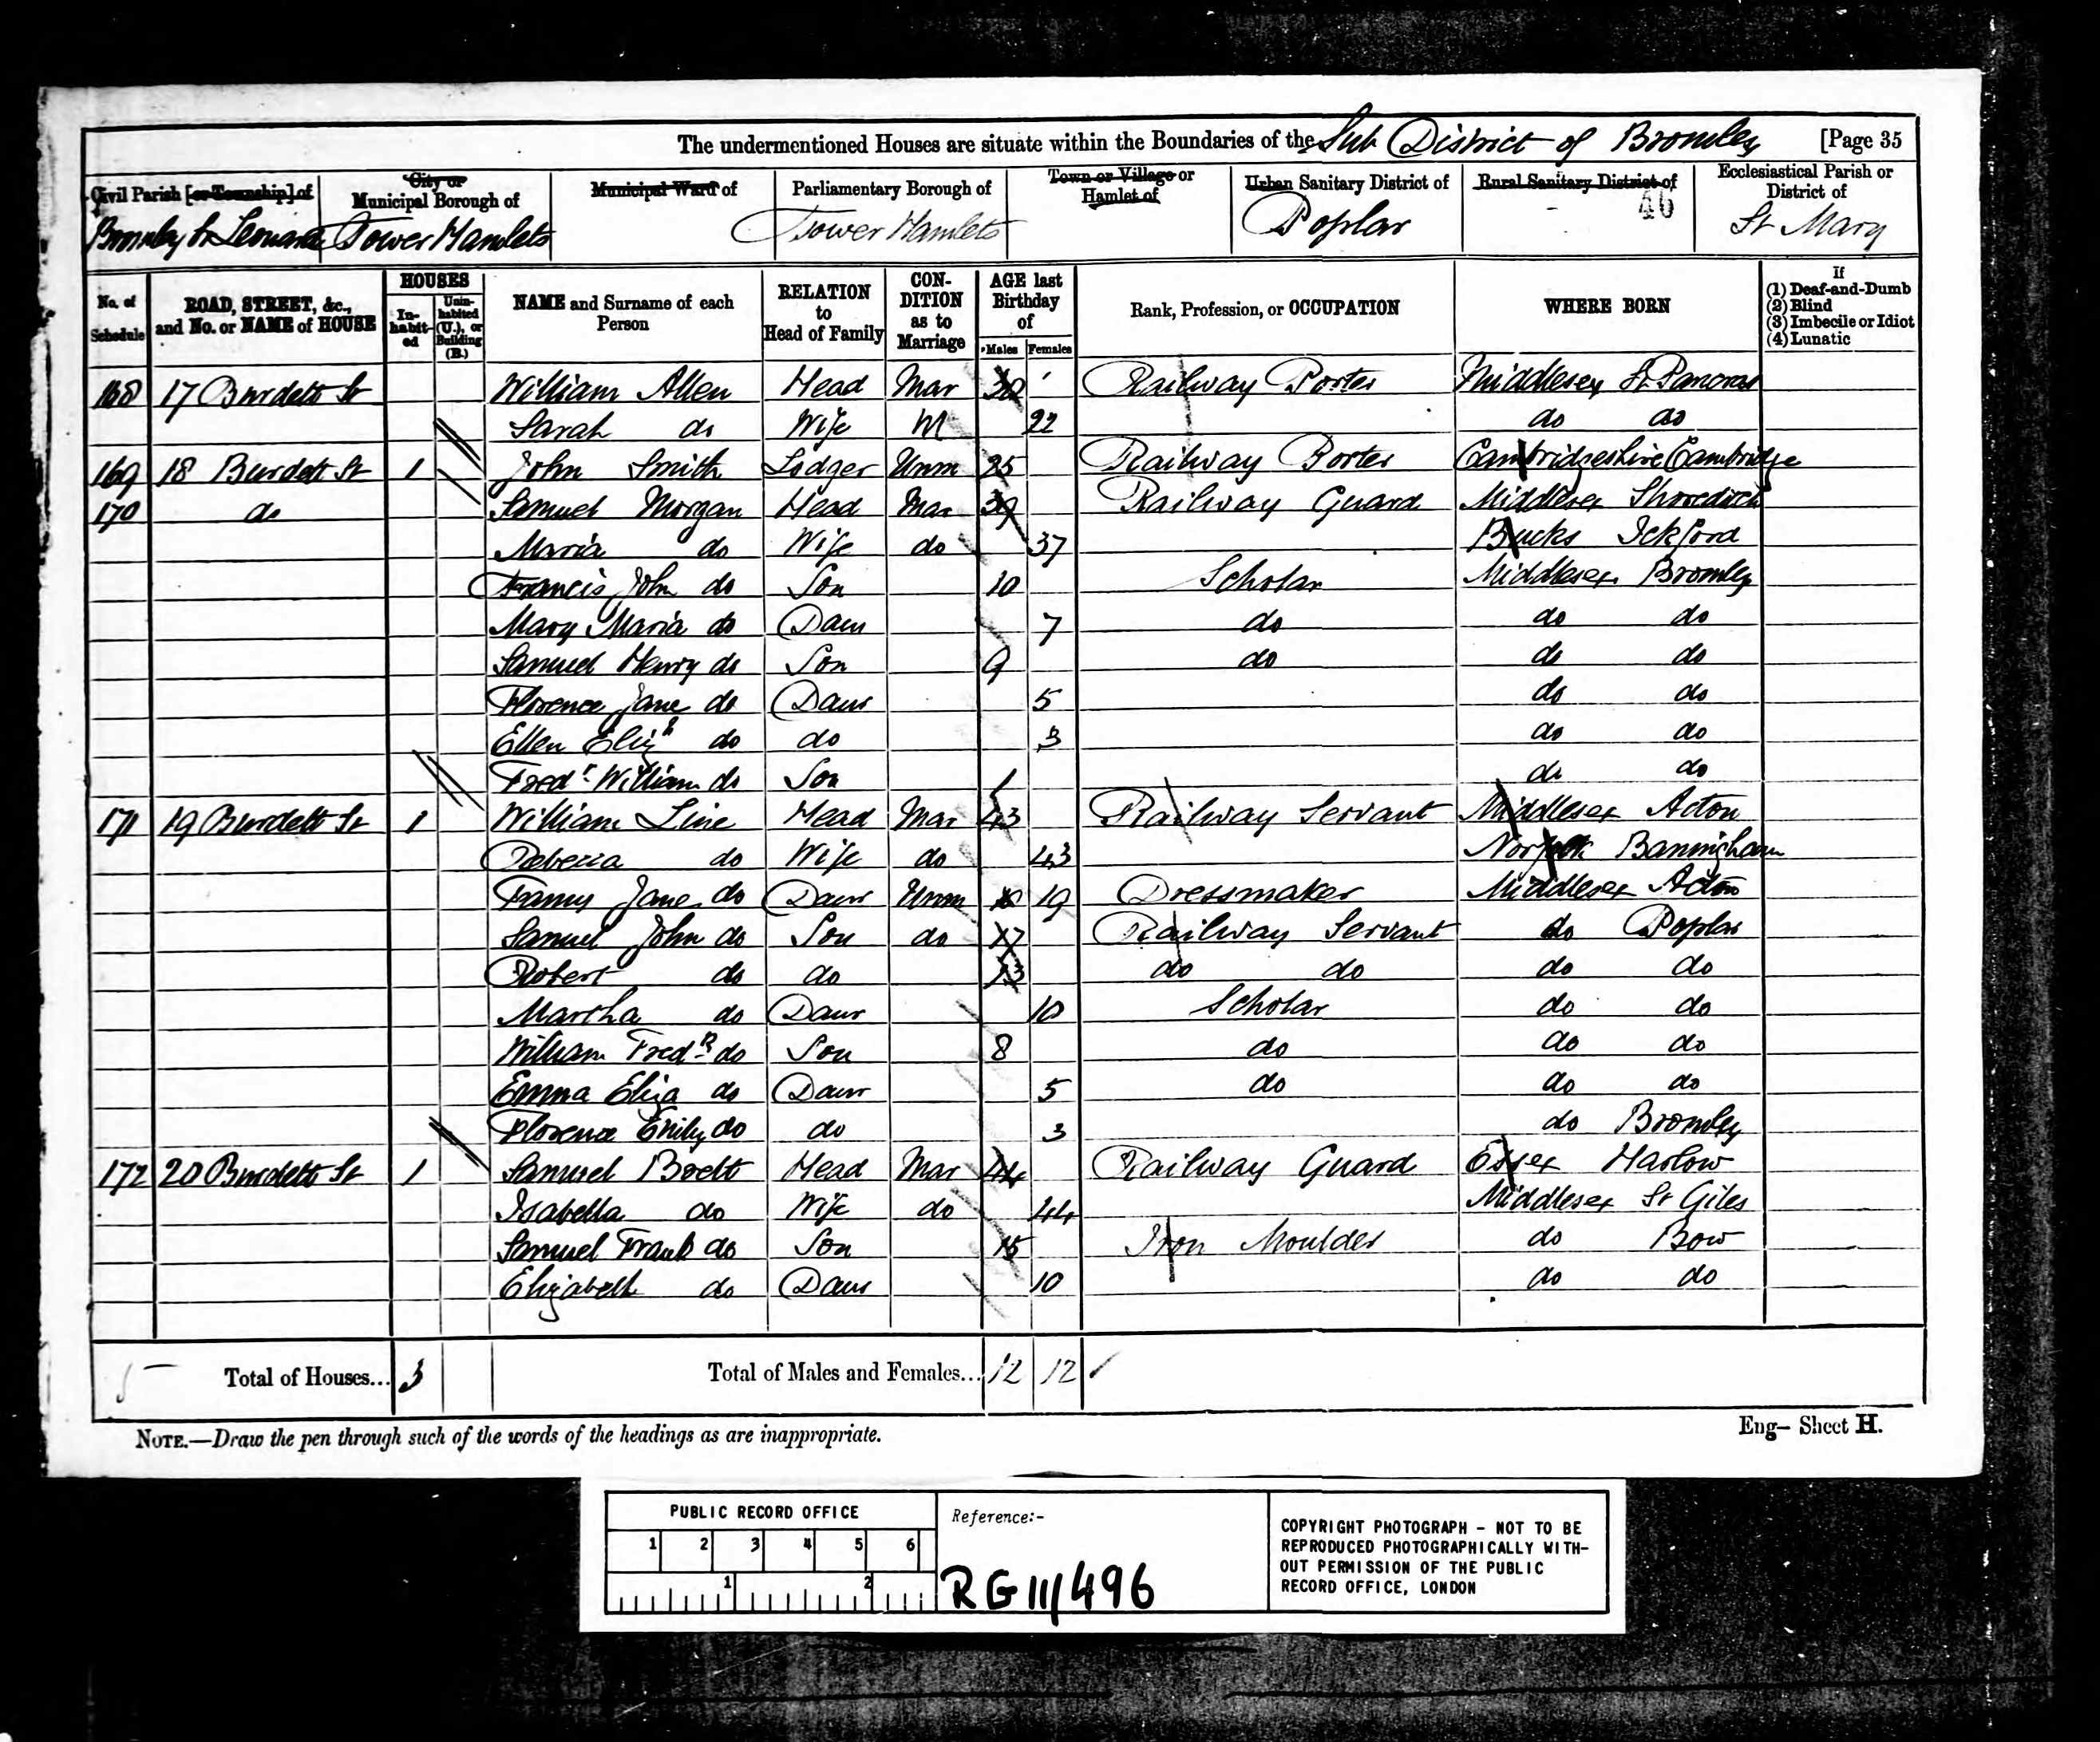 The undermentioned Houses are situate within the Boundaries of the Sub District of Bromley [Page 35
Civil Parish [or Township] of City or Municipal Borough of Municipal Ward of Parliamentary Borough of Town or Village or Hamlet of Urban Sanitary District of Rural Sanitary District of Ecclesiastical Parish or District of
Bromley St Leonard Tower Hamlets Tower Hamlets Poplar 46 St Mary
No. of Schedule ROAD, STREET, &c., and No. or NAME of HOUSE HOUSES In-habit-ed Unin-habited (U.), or Building (B.) NAME and Surname of each Person RELATION to Head of Family CON-DITION as to Marriage AGE last Birthday of Males Females Rank, Profession, or OCCUPATION WHERE BORN If (1) Deaf-and-Dumb (2) Blind (3) Imbecile or Idiot (4) Lunatic
168 17 Burdett St William Allen Head Mar Railway Porter Middlesex St Pancras
Sarah do Wife M 22 do do
169 18 Burdett St 1 John Smith Lodger Unm 25 Railway Porter Cambridgeshire Cambridge
170 do Samuel Morgan Head Mar 39 Railway Guard Middlesex Shoreditch
Maria do Wife do 37 Bucks Ickford
Francis John do Son 10 Scholar Middlesex Bromley
Mary Maria do Daur 7 do do do
Samuel Henry do Son 9 do do do
Florence Jane do Daur 5 do do
Ellen Elizh do do 3 do do
Fredr William do Son 1 do do
171 19 Burdett St 1 William Line Head Mar 43 Railway Servant Middlesex Acton
Rebecca do Wife do 43 Norfolk Banningham
Fanny Jane do Daur Unm 19 Dressmaker Middlesex Acton
Samuel John do Son do 17 Railway Servant do Poplar
Robert do do 13 do do do do
Martha do Daur 10 Scholar do do
William Fredk do Son 8 do do do
Emma Eliza do Daur 5 do do do
Florence Emily do do 3 do Bromley
172 20 Burdett St 1 Samuel Brett Head Mar 44 Railway Guard Essex Harlow
Isabella do Wife do 44 Middlesex St Giles
Samuel Frank do Son 15 Iron Moulder do Bow
Elizabeth do Daur 10 do do
Total of Houses... 3 Total of Males and Females... 12 12
NOTE.—Draw the pen through such of the words of the headings as are inappropriate. Eng— Sheet H.
PUBLIC RECORD OFFICE
1 2 3 4 5 6
1 2
Reference:-
RG 11/496
COPYRIGHT PHOTOGRAPH - NOT TO BE
REPRODUCED PHOTOGRAPHICALLY WITH-
OUT PERMISSION OF THE PUBLIC
RECORD OFFICE, LONDON